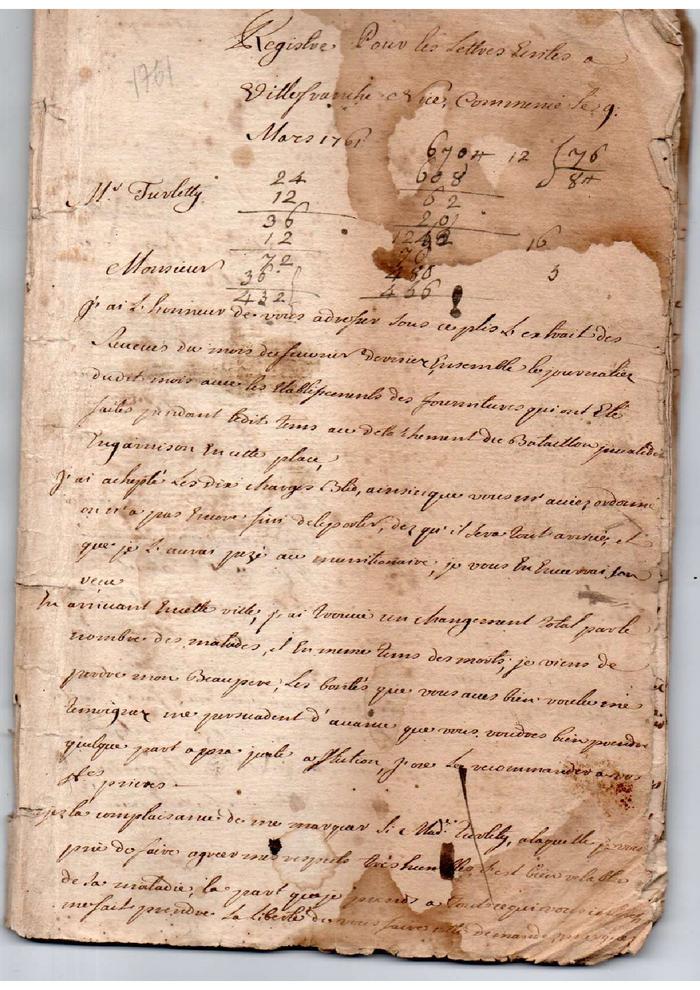 Registre Pour les Lettres Ecrites a
1761
Villefranche & Nice, Commencé le 9:
Mars 1761
670 ₶ 12 76
24 608 8 ₶
Mr. Turletty
12 62
36 20
12 1242 16
72 76
Monsieur
36 480 5
432 466
J'ai L'honneur de vous adresser sous ce plis L'extrait des
Reveües du mois de feuvrier dernier Ensemble le journalier
dudit mois avec les Etablissements des fournitures qui ont Eté
faites pendant ledit tems au detachement du Bataillon
Engarnison En cette place,
J'ai achepté Les dix charges Bled, ainsi que vous m'aviez ordonné
on n'a pas Encore fini de le porter, dez qu'il sera tout arrivé, et
que je L'auray pezé au munitionaire, je vous En Enverrai son
reçu
En arrivant En cette ville, j'ai trouvé un changement total par le
nombre des malades, et En meme tems des morts, je viens de
perdre mon Beaupere, Les bontés que vous avez bien voulu me
temoigner me persuadent d'avance que vous voudrez bien prendre
quelque part a ma juste affliction, J'ose La recommander a vos
prieres
la complaisance de me marquer Si Made. Turletty, a laquelle je vous
prie de faire agreer mes respects tres humbles est bien retablie
de sa maladie, la part que je prends a tout ce qui vous
me fait prendre La liberté de vous faire cette demande